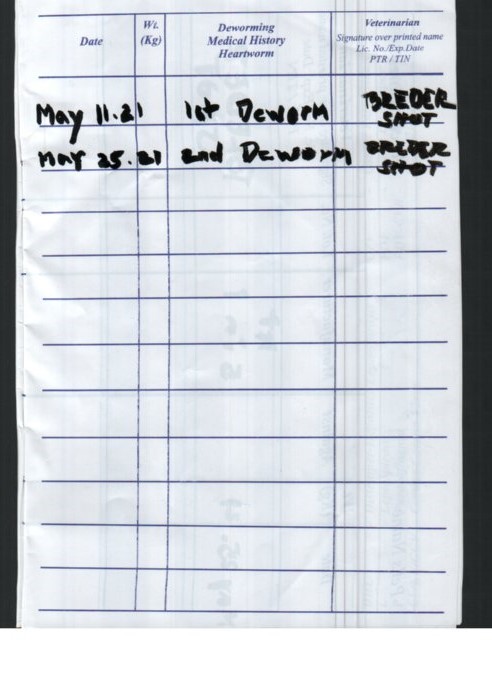 Date
Wt.
(Kg)
Deworming
Medical History
Heartworm
Veterinarian
Signature over printed name
Lic. No./Exp.Date
PTR / TIN
May 11.21 1st Deworm BREDER
SHOT
May 25.21 2nd Deworm BREDER
SHOT